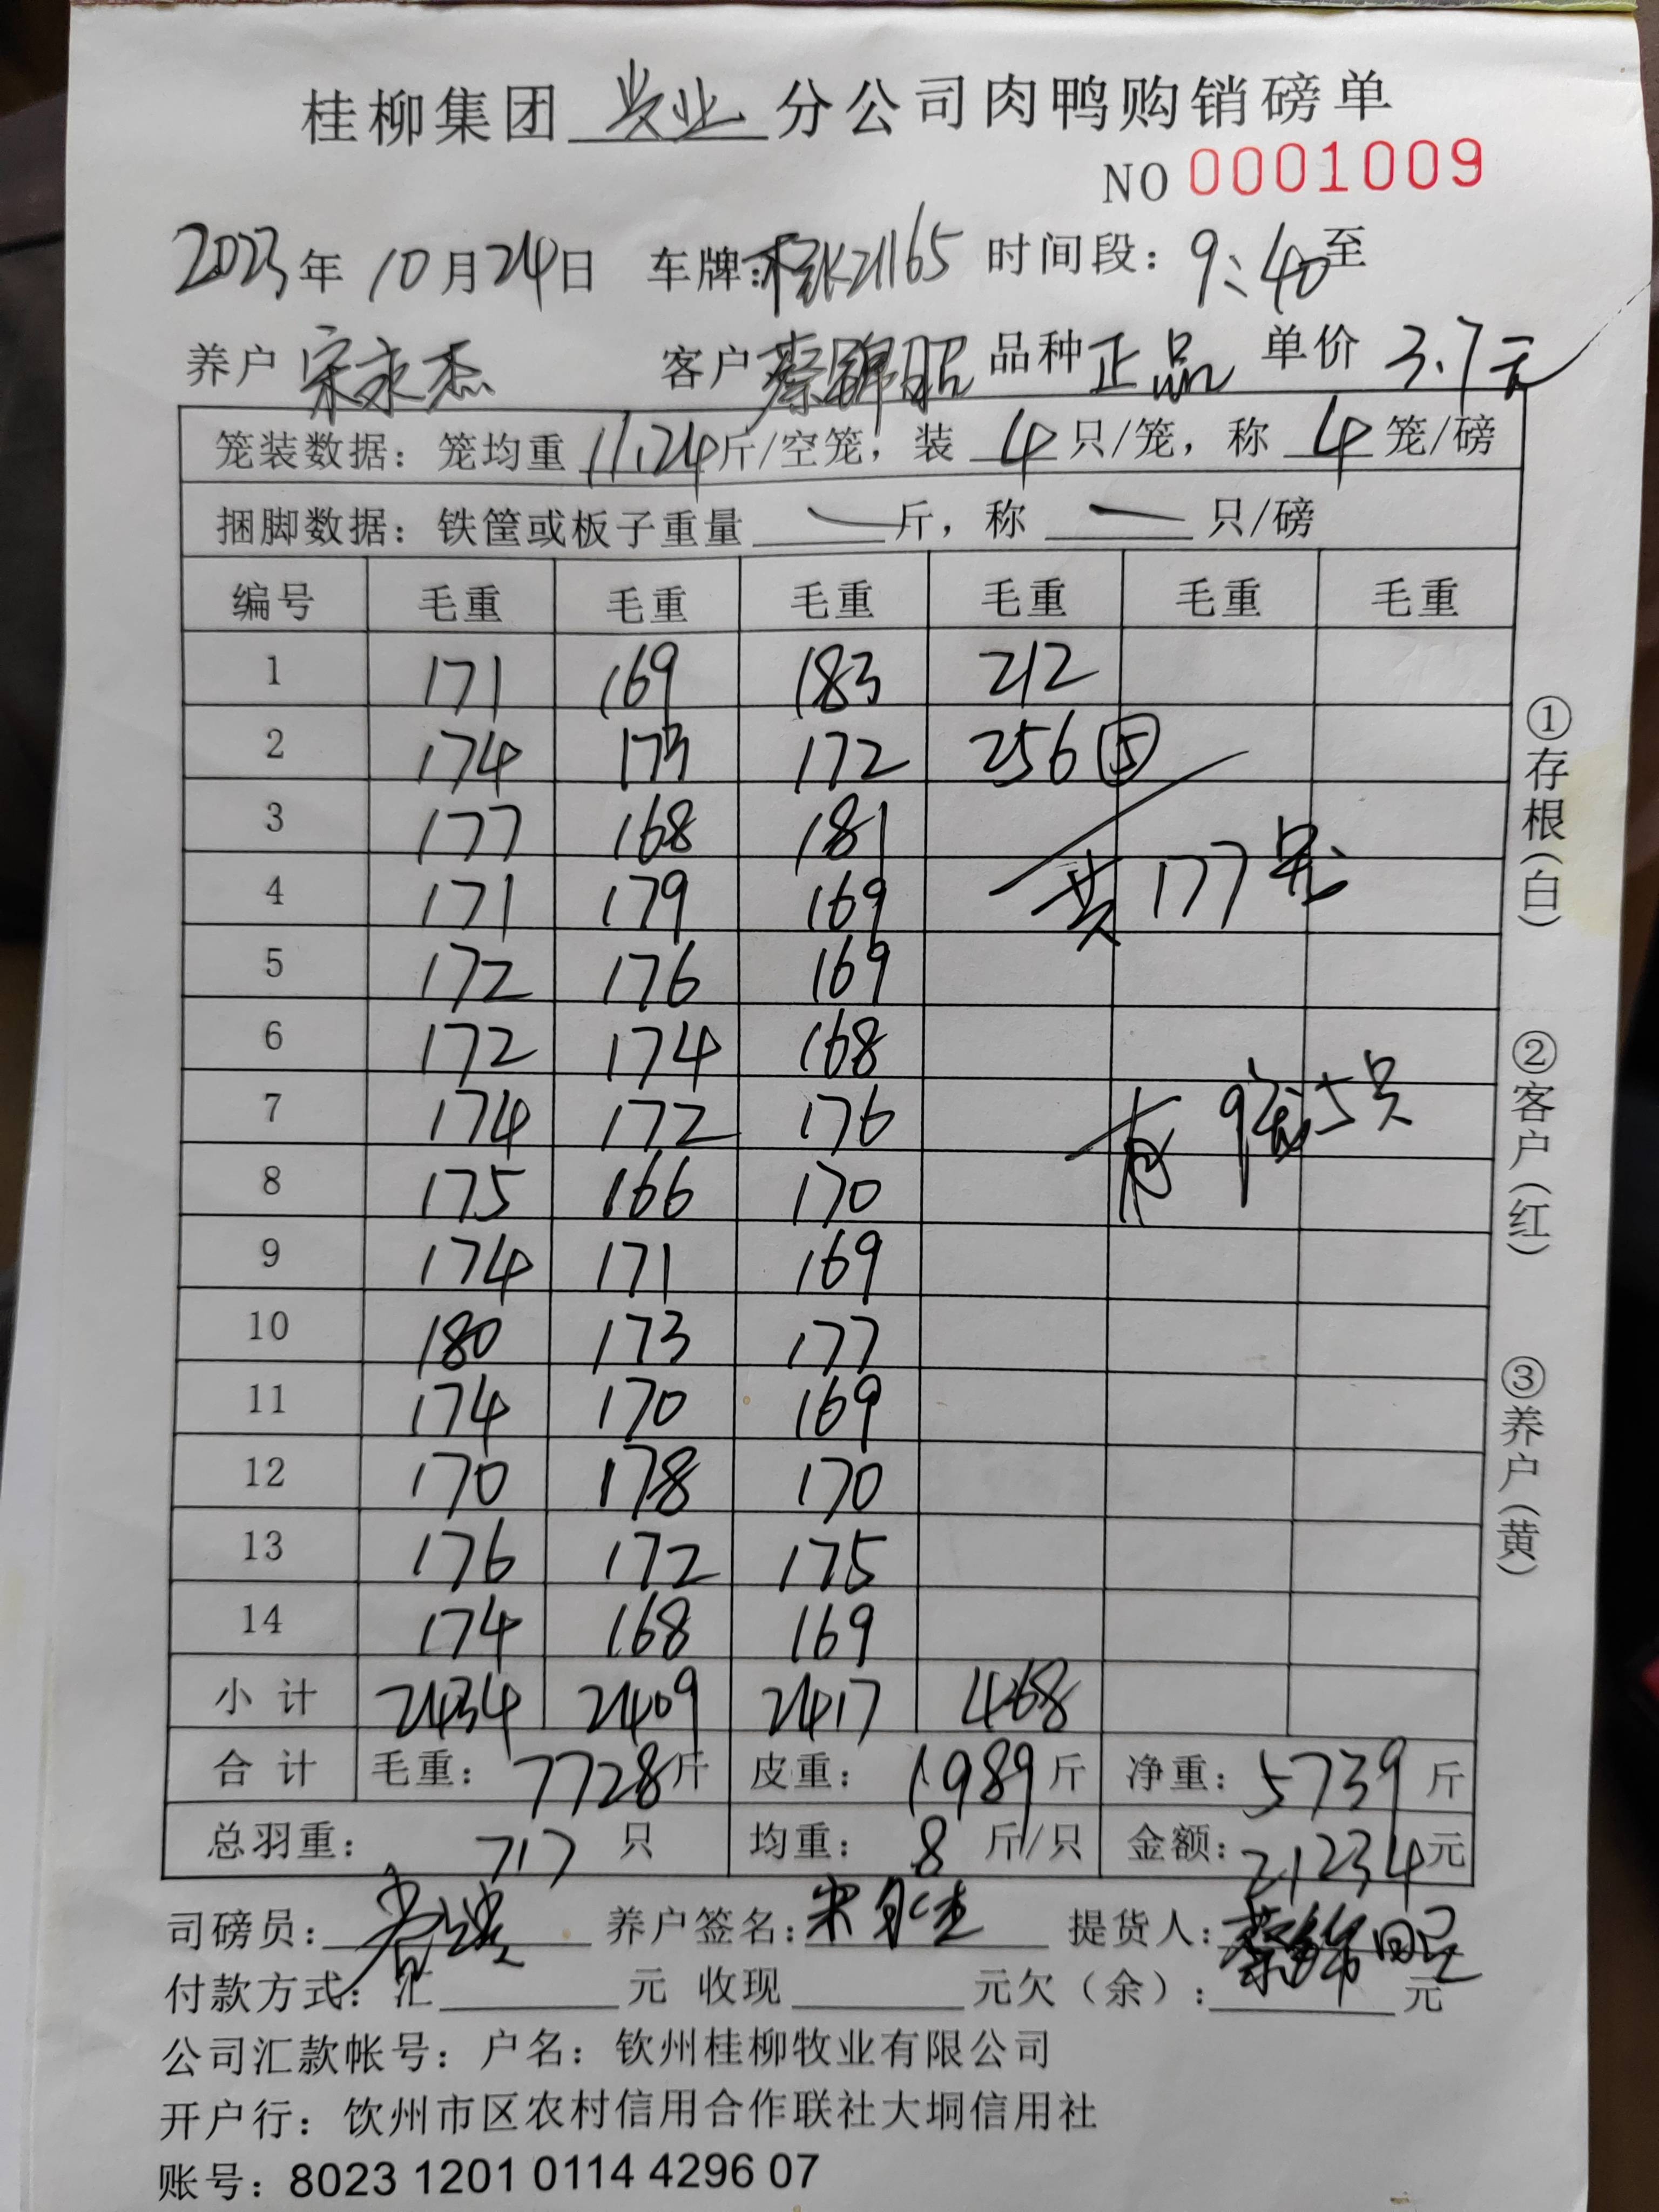 桂柳集团 牧业 分公司肉鸭购销磅单
NO 0001009
2023年 10月24日 车牌:桂K21165 时间段：9:40至
养户 宋永杰 客户 蔡锦昭 品种 正品 单价 3.7元
笼装数据：笼均重 11.24斤/空笼，装 4只/笼，称 4笼/磅
捆脚数据：铁筐或板子重量 — 斤，称 — 只/磅
编号 毛重 毛重 毛重 毛重 毛重 毛重
1 171 169 183 212
2 174 173 172 256 ⑤
3 177 168 181
4 171 179 169 共 177笼
5 172 176 169
6 172 174 168
7 174 172 176 有 9笼5只
8 175 166 170
9 174 171 169
10 180 173 177
11 174 170 169
12 170 178 170
13 176 172 175
14 174 168 169
小计 2434 2409 2417 468
合计 毛重：7728斤 皮重：1989斤 净重：5739斤
总羽重：717 只 均重：8 斤/只 金额：21234元
司磅员： 养户签名： 提货人：蔡锦昭
付款方式：汇 元 收现 元欠（余）： 元
公司汇款帐号：户名：钦州桂柳牧业有限公司
开户行：饮州市区农村信用合作联社大垌信用社
账号：8023 1201 0114 4296 07
①存根（白）
②客户（红）
③养户（黄）